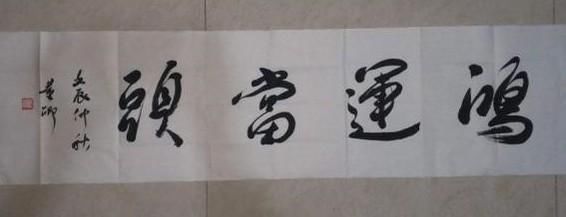 鴻運當頭
壬辰仲秋